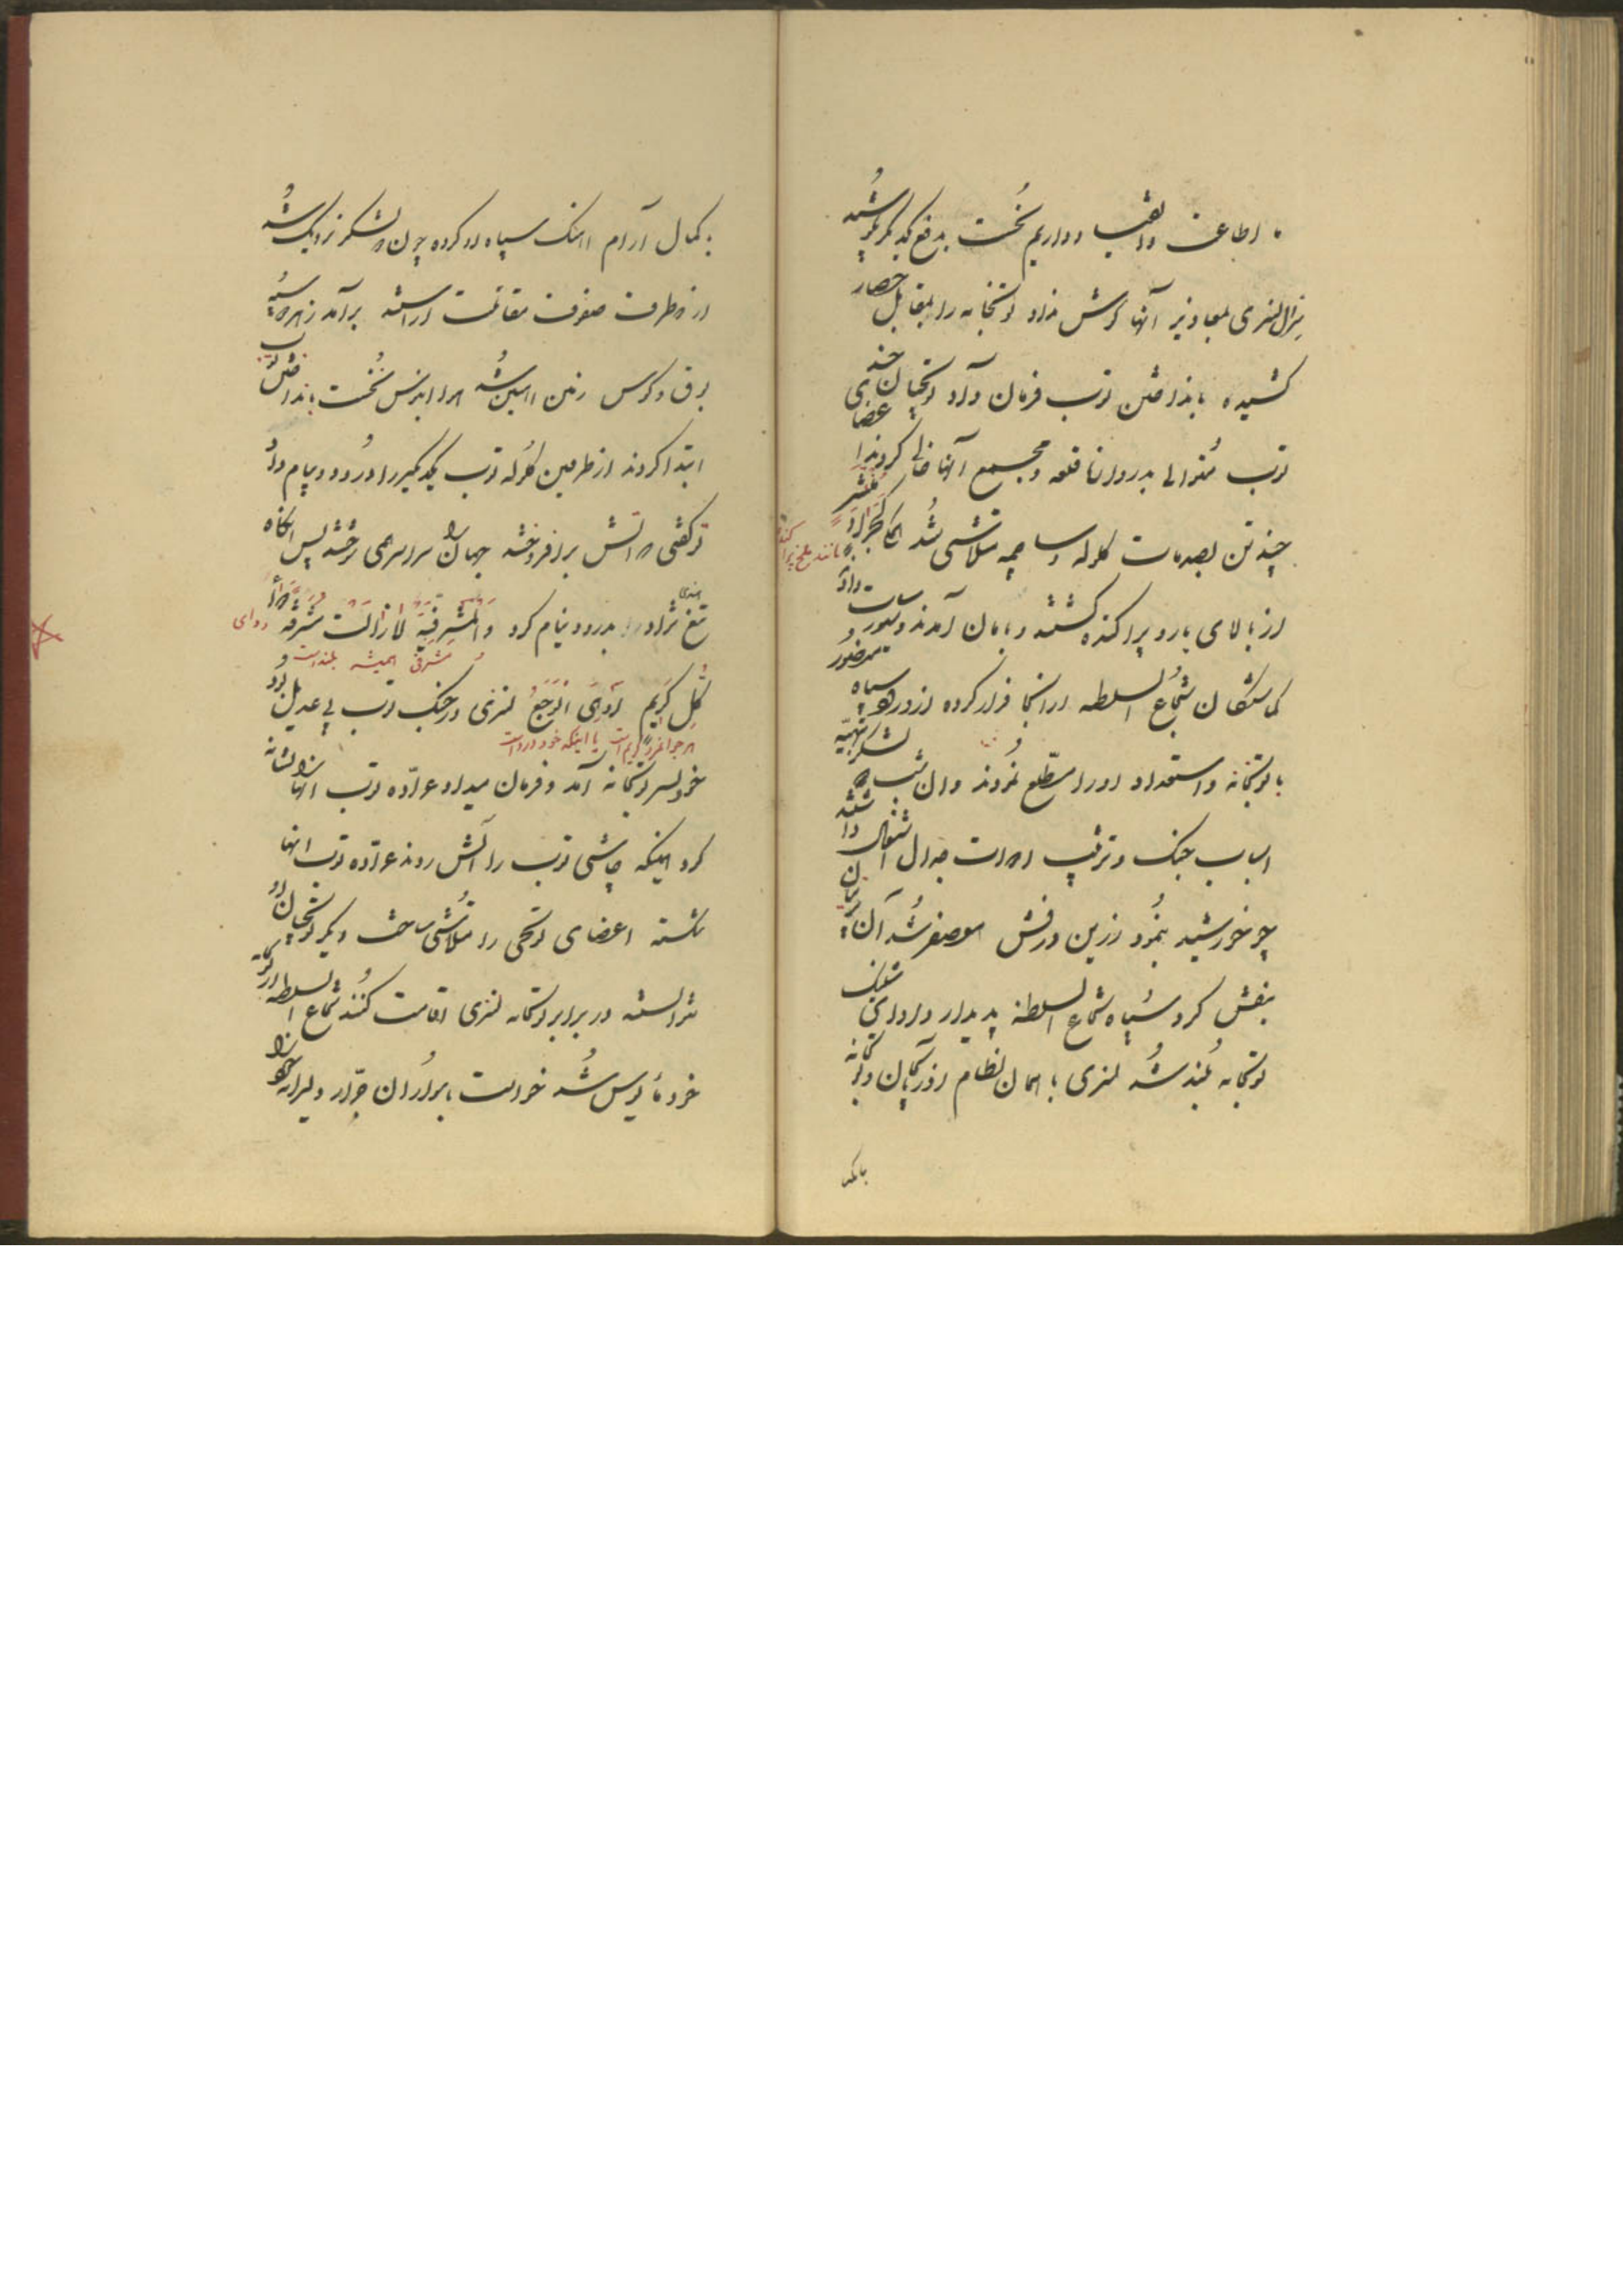 ما اطاعت و انقیاد داریم نخست بدفع یکدیگر بکوشید
جنرال لنزی بمعاذیر آنها گوش نداد توپخانه را بمقابل حصار
کشیده بانداختن توپ فرمان داد توپچیان چند
توپ متوالی بدروازه قلعه و مجمع آنها خالی کردند اعضای
چند تن بصدمات گلوله و ساچمه متلاشی شد کانهم جراد منتشر
مانند ملخ پراکنده
از بالای بارو پراکنده گشتند و بامان آمدند
گماشتگان شجاع السلطنه از آنجا فرار کرده از ورود سپاه منصور
با توپخانه و استعداد او را مطلع نمودند و آن شب هر دو لشکر بتهیه
اسباب جنک و ترتیب ادوات جدال اشتغال داشتند
چو خورشید بنمود زرین درفش معصفر شد آن پرنیان
بنفش کرد سپاه شجاع السلطنه پدیدار و آوای شلیک
توپخانه بلند شد لنزی با همان نظام آذربایجان و توپخانه
بکمال آرام آهنک سپاه او کرده چون دو لشکر نزدیک شد
از دو طرف صفوف مقاتلت آراسته برآمد ز هر دو سپه
برق و کوس زمین آهنین شد هوا آبنوس نخست بانداختن توپ
ابتدا کردند از طرفین گلوله توپ یکدیگر را درود و پیام داد
تو گفتی هوا آتش برافروخته جهان سراسر همی سوخته پس آنگاه
تیغ هندی نژاد را بدرود نیام کرد و المشرفیة لا زالت مشرفة دواء
مشرفی همیشه بلند است دوای
کل کریم او هی الوجع لنزی در جنک توپ بی عدیل بود
هر جوانمرد کریم است یا اینکه خود درد است
خود بسر توپخانه آمد و فرمان میداد عراده توپ آنها را نشانه
کرد اینکه چاشنی توپ را آتش زدند عراده توپ آنها
شکسته اعضای توپچی را متلاشی ساخت دیگر توپچیان او
نتوانستند در برابر توپخانه لنزی اقامت کنند شجاع السلطنه از توپخانه
خود مأیوس شد خواست با سواران جرار و دلیرانه خود